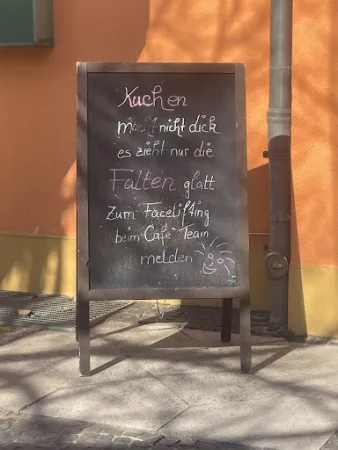 Kuchen
macht nicht dick
es zieht nur die
Falten glatt
zum Facelifting
beim Café Team
melden